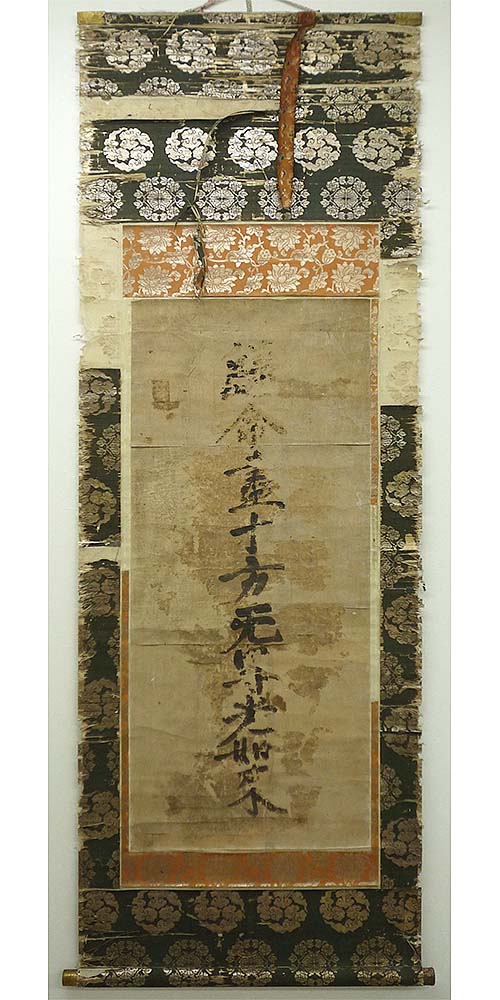 歸命尽十方无㝵光如来